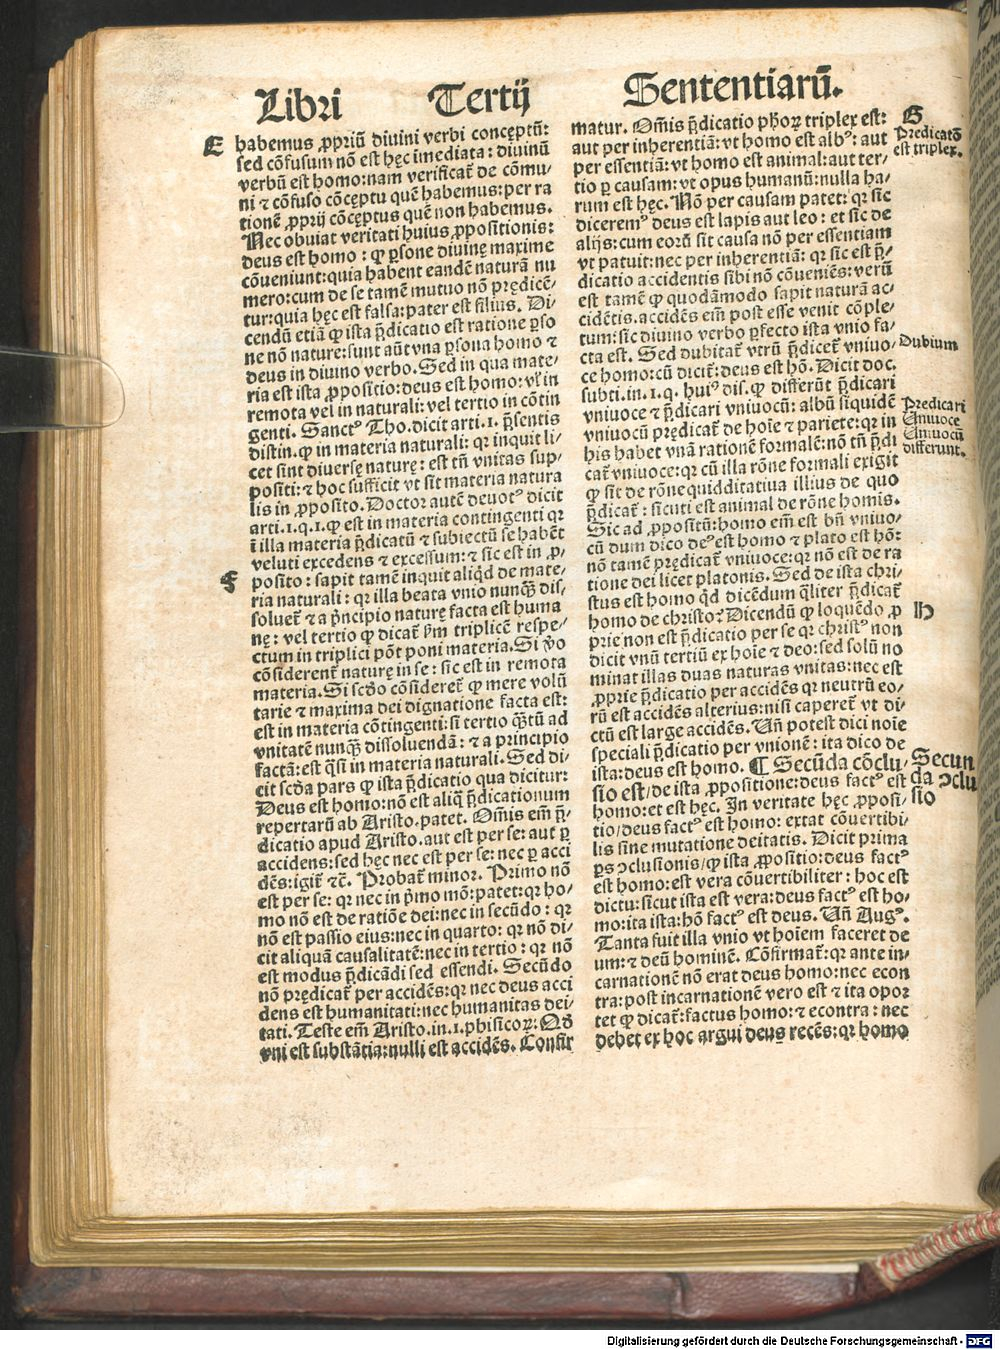 Libri Tertij Sententiarū.
E
habemus ꝓpriū diuini verbi concęptū:
sed cōfusum nō est hęc imediata: diuinū
verbū est homo: nam verificat̄ de cōmu/
ni ⁊ cōfuso cōcęptu quē habemus: per ra
tionē ꝓprij cōcęptus quē non habemus.
Nec obuiat veritati huius ꝓpositionis:
deus est homo: ꝙ ꝑsone diuinę maxime
cōueniunt: quia habent eandē naturā nu
mero: cum de se tamē mutuo nō prędicē/
tur: quia hęc est falsa: pater est filius. Di/
cendū etiā ꝙ ista p̄dicatio est ratione ꝑso
ne nō nature: sunt aūt vna ꝑsona homo ⁊
deus in diuino verbo. Sed in qua mate/
ria est ista ꝓpositio: deus est homo: vt̄ in
remota vel in naturali: vel tertio in cōtin
genti. Sanctꝰ Tho. dicit arti. 1. p̄sentis
distin. ꝙ in materia naturali: qꝛ inquit li/
cet sint diuersę naturę: est tn̄ vnitas sup/
positi: ⁊ hoc sufficit vt sit materia natura
lis in ꝓposito. Doctor autē deuotꝰ dicit
arti. 1. q. 1. ꝙ est in materia contingenti qꝛ
ī illa materia p̄dicatū ⁊ subiectū se habēt
veluti excedens ⁊ excessum: ⁊ sic est in ꝓ/
F
posito: sapit tamē inquit aliqd̄ de mate/
ria naturali: qꝛ illa beata vnio nunqꝫ dis/
soluet̄ ⁊ a p̄ncipio naturę facta est huma
nę: vel tertio ꝙ dicat̄ ẜm triplicē respe/
ctum in triplici pōt poni materia. Si v̄o
cōsiderent̄ naturę in se: sic est in remota
materia. Si scd̄o cōsideret̄ ꝙ mere volū
tarie ⁊ maxima dei dignatione facta est:
est in materia cōtingenti: si tertio qꝫtū ad
vnitatē nunqꝫ dissoluendā: ⁊ a principio
factā: est qſi in materia naturali. Sed di/
cit scd̄a pars ꝙ ista p̄dicatio qua dicitur:
Deus est homo: nō est aliq̄ p̄dicationum
repertarū ab Aristo. patet. Om̄is em̄ p̄/
dicatio apud Aristo. aut est per se: aut ꝑ
accidens: sed hęc nec est per se: nec ꝑ acci
dēs: igit̄ ⁊c̄. Probat̄ minor. Primo nō
est per se: qꝛ nec in p̄mo mō: patet: qꝛ ho/
mo nō est de ratiōe dei: nec in secūdo: qꝛ
nō est passio eius: nec in quarto: qꝛ nō di/
cit aliquā causalitatē: nec in tertio: qꝛ nō
est modus p̄dicādi sed essendi. Secūdo
nō prędicat̄ per accidēs: qꝛ nec deus acci
dens est humanitati: nec humanitas dei/
tati. Teste em̄ Aristo. in. 1. phisicoꝝ: Qd̄
vni est substātia: nulli est accidēs. Confir
matur. Om̄is p̄dicatio ph̄oꝝ triplex est:
aut per inherentiā: vt homo est albꝰ: aut
per essentiā: vt homo est animal: aut ter/
tio ꝑ causam: vt opus humanū: nulla ha/
rum est hęc. Nō per causam patet: qꝛ sic
diceremꝰ deus est lapis aut leo: et sic de
alijs: cum eorū sit causa nō per essentiam
vt patuit: nec per inherentiā: qꝛ sic est p̄/
dicatio accidentis sibi nō cōueniēs: verū
est tamē ꝙ quodāmodo sapit naturā ac/
cidētis. accidēs em̄ post esse venit cōple/
tum: sic diuino verbo ꝑfecto ista vnio fa/
cta est. Sed dubitat̄ vtrū p̄dicet̄ vniuo/
ce homo: cū dicit̄: deus est hō. Dicit doc.
subti. in. 1. q. huiꝰ dis. ꝙ differūt p̄dicari
vniuoce ⁊ p̄dicari vniuocū: albū siquidē
vniuocū prędicat̄ de hoīe ⁊ pariete: qꝛ in
his habet vnā rationē formalē: nō tn̄ p̄di
cat̄ vniuoce: qꝛ cū illa rōne formali exigit
ꝙ sit de rōne quidditatiua illius de quo
p̄dicat̄: sicuti est animal de rōne homis.
Sic ad ꝓpositū: homo em̄ est bn̄ vniuo/
cū dum dico deꝰ est homo ⁊ plato est hō:
nō tamē prędicat̄ vniuoce: qꝛ nō est de ra
tione dei licet platonis. Sed de ista chri/
stus est homo qd̄ dicēdum q̄liter p̄dicat̄
homo de christo? Dicendū ꝙ loquēdo ꝓ
prie non est p̄dicatio per se qꝛ christꝰ non
dicit vnū tertiū ex hoīe ⁊ deo: sed solū no
minat illas duas naturas vnitas: nec est
ꝓprie p̄dicatio per accidēs qꝛ neutrū eo/
rū est accidēs alterius: nisi caperet̄ vt di/
ctū est large accidēs. Vn̄ potest dici noīe
speciali p̄dicatio per vnionē: ita dico de
ista: deus est homo. ¶ Secūda cōclu/
sio est/ de ista ꝓpositione: deus factꝰ est
homo: et est hęc. In veritate hęc ꝓposi/
tio/ deus factꝰ est homo: extat cōuertibi/
lis sine mutatione deitatis. Dicit prima
ꝑs ↄclusionis/ ꝙ ista ꝓpositio: deus factꝰ
est homo: est vera cōuertibiliter: hoc est
dictu: sicut ista est vera: deus factꝰ est ho/
mo: ita ista: hō factꝰ est deus. Vn̄ Augꝰ.
Tanta fuit illa vnio vt hoīem faceret de
um: ⁊ deū hominē. Cōfirmat̄: qꝛ ante in/
carnationē nō erat deus homo: nec econ
tra: post incarnationē vero est ⁊ ita opor
tet ꝙ dicat̄: factus homo: ⁊ econtra: nec
debet ex hoc argui deus recēs: qꝛ homo
G
Predicatō
est triplex.
Dubium
Predicari
Vniuoce
Vniuocū
differunt.
H
Secun
da ↄclu
sio
Digitalisierung gefördert durch die Deutsche Forschungsgemeinschaft - DFG